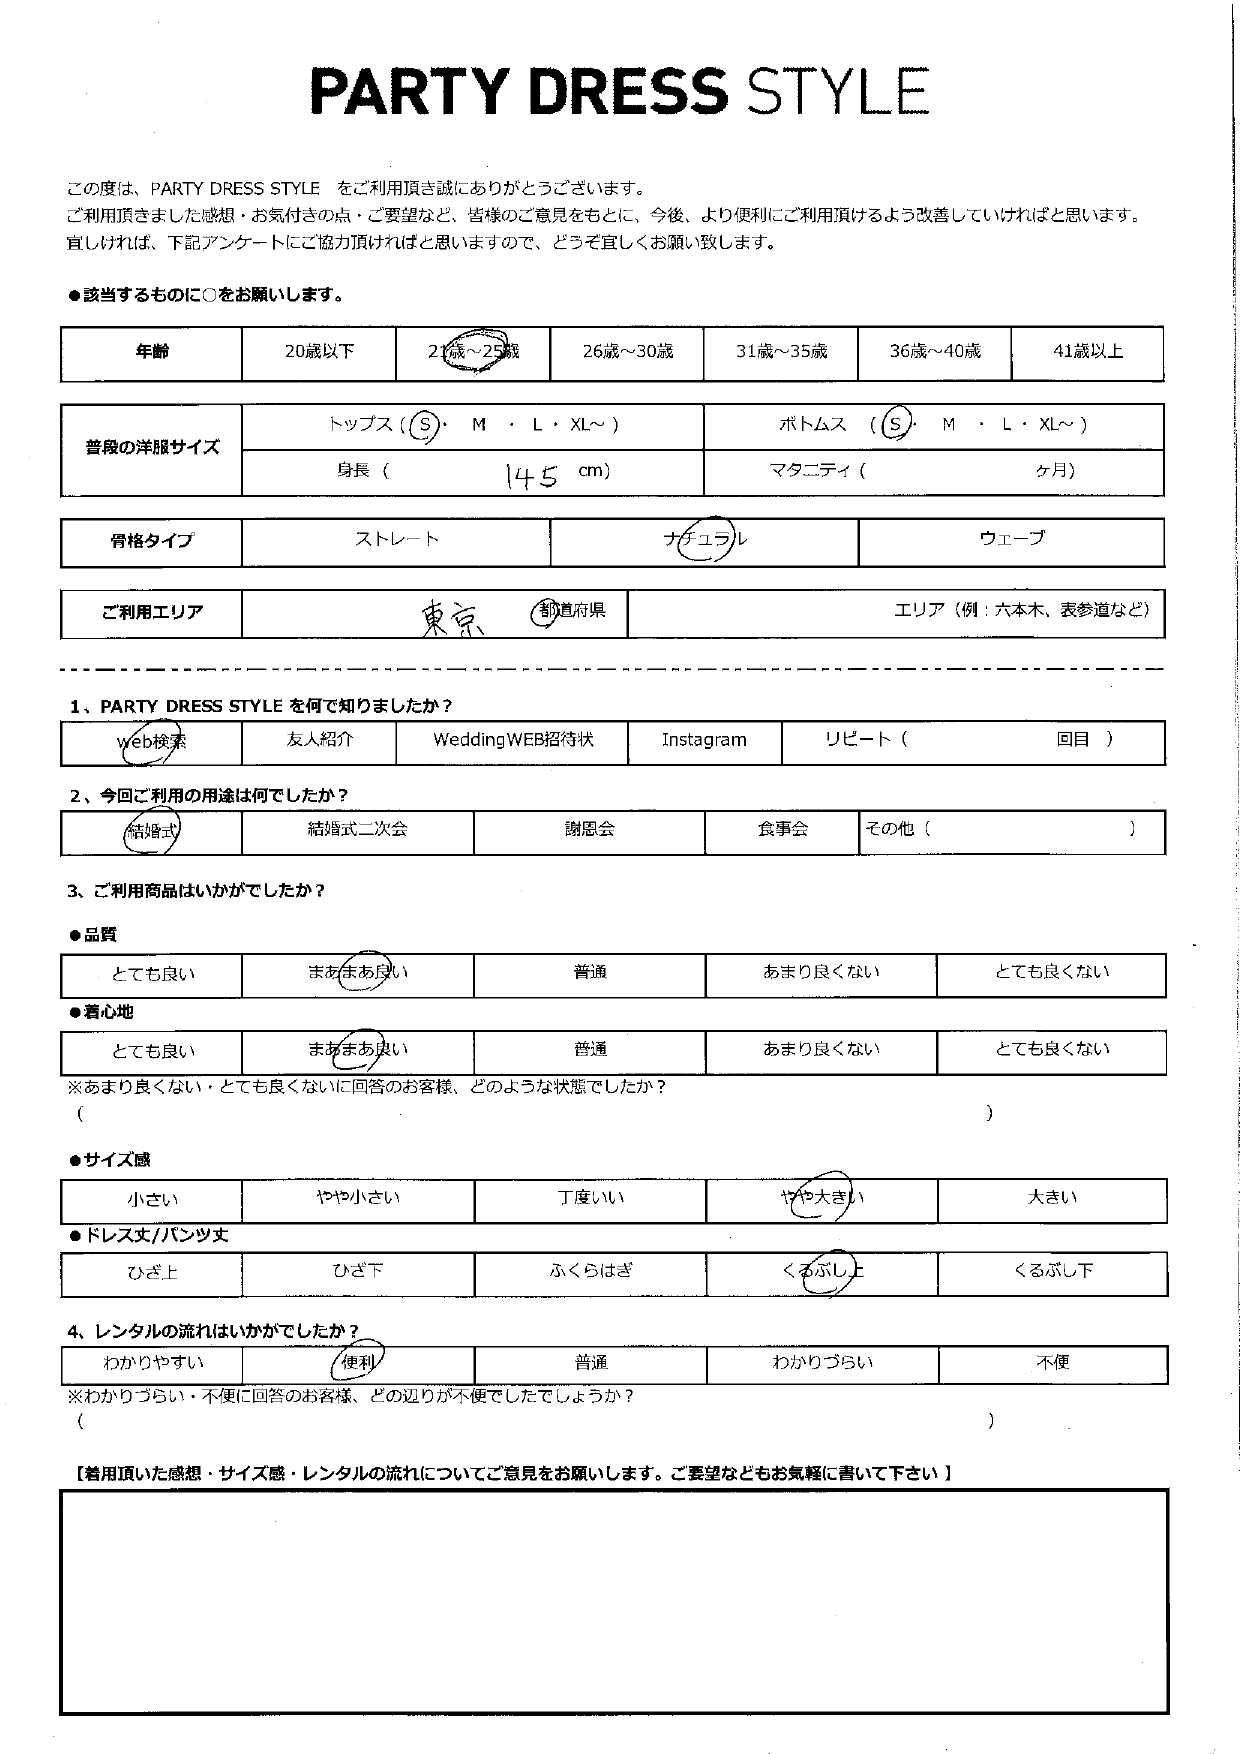 PARTY DRESS STYLE
この度は、PARTY DRESS STYLE をご利用頂き誠にありがとうございます。
ご利用頂きました感想・お気付きの点・ご要望など、皆様のご意見をもとに、今後、より便利にご利用頂けるよう改善していければと思います。
宜しければ、下記アンケートにご協力頂ければと思いますので、どうぞ宜しくお願い致します。
●該当するものに○をお願いします。
年齢 20歳以下 21歳～25歳 26歳～30歳 31歳～35歳 36歳～40歳 41歳以上
普段の洋服サイズ トップス（S・ M ・ L ・ XL～ ） ボトムス （S・ M ・ L ・ XL～ ）
身長（ 145 cm） マタニティ（ ケ月）
骨格タイプ ストレート ナチュラル ウェーブ
ご利用エリア 東京 都道府県 エリア（例：六本木、表参道など）
1、PARTY DRESS STYLE を何で知りましたか？
web検索 友人紹介 WeddingWEB招待状 Instagram リピート（ 回目 ）
2、今回ご利用の用途は何でしたか？
結婚式 結婚式二次会 謝恩会 食事会 その他（ ）
3、ご利用商品はいかがでしたか？
●品質
とても良い まあまあ良い 普通 あまり良くない とても良くない
●着心地
とても良い まあまあ良い 普通 あまり良くない とても良くない
※あまり良くない・とても良くないに回答のお客様、どのような状態でしたか？
（ ）
●サイズ感
小さい やや小さい 丁度いい やや大きい 大きい
●ドレス丈/パンツ丈
ひざ上 ひざ下 ふくらはぎ くるぶし上 くるぶし下
4、レンタルの流れはいかがでしたか？
わかりやすい 便利 普通 わかりづらい 不便
※わかりづらい・不便に回答のお客様、どの辺りが不便でしたでしょうか？
（ ）
【着用頂いた感想・サイズ感・レンタルの流れについてご意見をお願いします。ご要望などもお気軽に書いて下さい 】